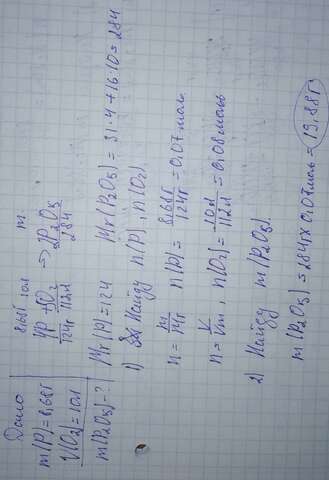 Дано
m(P)=8,68г
V(O2)=10л
m(P2O5)-?
8,68г 10л m
4P + 5O2 => 2P2O5
124г 112л 284
Mr(P)=124 Mr(P2O5)=31·4+16·10=284
1) Найду n(P), n(O2)
n=m/Mr n(P)=8,68г/124г=0,07моль
n=V/Vm, n(O2)=10л/112л=0,08моль
2) Найду m(P2O5)
m(P2O5)=284×0,07моль=19,88г